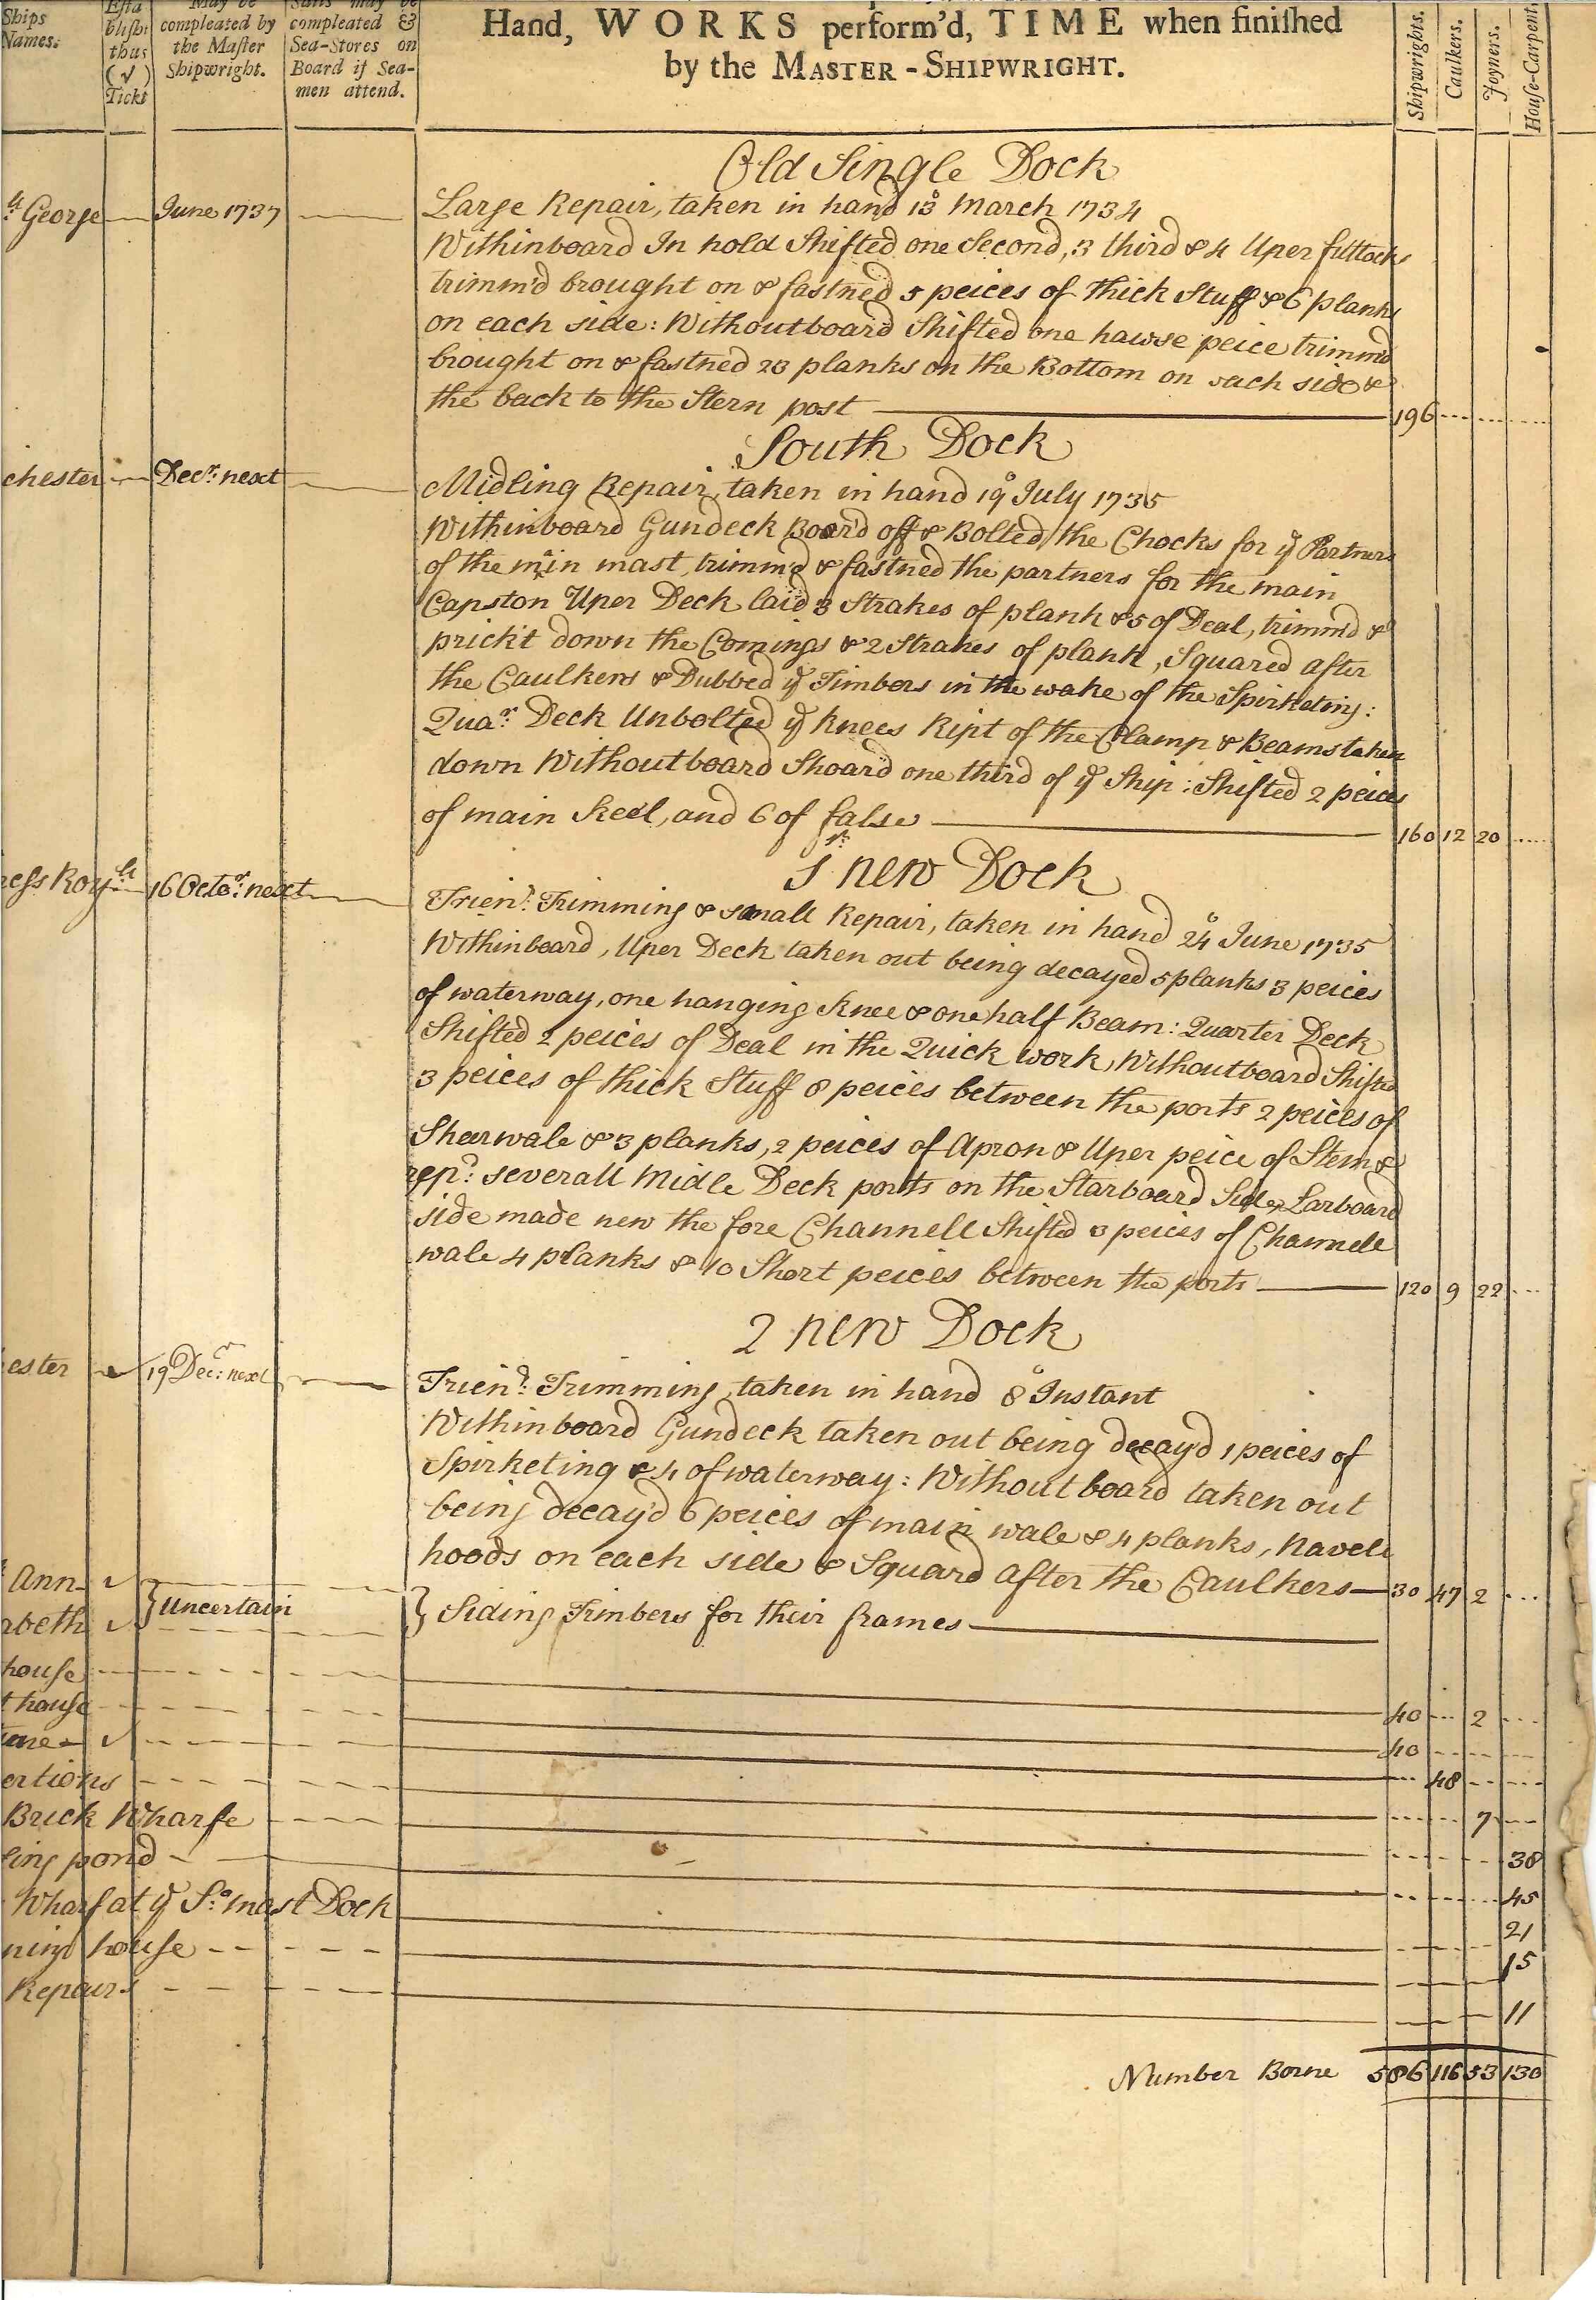 Ships
Names.
Esta
blisht
thus
(√)
Tickt
May be
compleated by
the Master
Shipwright.
Sails may be
compleated &
Sea-Stores on
Board if Sea-
men attend.
Hand, WORKS perform'd, TIME when finished
by the MASTER-SHIPWRIGHT.
Shipwrights.
Caulkers.
Joyners.
House-Carpent.
Old Single Dock
George June 1737 Large Repair, taken in hand 13 March 1734
Withinboard In hold Shifted one Second, 3 third & 4 Uper futtocks
trimm'd brought on & fastned 5 peices of thick Stuff & 6 planks
on each side: Withoutboard Shifted one hawse peice trimm'd
brought on & fastned 23 planks on the Bottom on each side &
the back to the Stern post 196
South Dock
chester Decr: next Midling Repair, taken in hand 19 July 1735
Withinboard Gundeck Boar'd off & Bolted the Chocks for ye Partners
of the main mast, trimm'd & fastned the partners for the main
Capston Uper Deck laid 3 Strakes of plank & 5 of Deal, trimm'd &
prick't down the Comings & 2 Strakes of plank, Squared after
the Caulkers & Dubbed ye Timbers in the wake of the Spirketing:
Quar: Deck Unbolted ye knees Ript of the Clamp & Beams taken
down Withoutboard Shoard one third of ye Ship: Shifted 2 peices
of main keel, and 6 of false 160 12 20
1st new Dock
ress Royll 16 Octor: next Trien: Trimming & small Repair, taken in hand 24 June 1735
Withinboard, Uper Deck taken out being decayed 5 planks 3 peices
of waterway, one hanging knee & one half Beam: Quarter Deck
Shifted 2 peices of Deal in the Quick work, Withoutboard Shifted
3 peices of thick Stuff 8 peices between the ports 2 peices of
Shearwale & 3 planks, 2 peices of Apron & Uper peice of Stem &
repd: severall Midle Deck ports on the Starboard Side, Larboard
side made new the fore Channell Shifted 3 peices of Channell
wale 4 planks & 10 Short peices between the ports 120 9 22
2 new Dock
ester 19 Decr: next Trien: Trimming, taken in hand 8 Instant
Withinboard Gundeck taken out being decay'd 1 peices of
Spirketing & 4 of waterway: Without board taken out
being decay'd 6 peices of main wale & 4 planks, Navell
hoods on each side & Squard after the Caulkers 30 47 2
Ann √
abeth √ } Uncertain } Siding Timbers for their frames
house
t house 40 2
√ 40
ertions 48
Brick Wharfe 7
ing pond 38
Wharf at ye So: mast Dock 45
house 21
Repairs 15
11
Number Borne 586 116 53 130